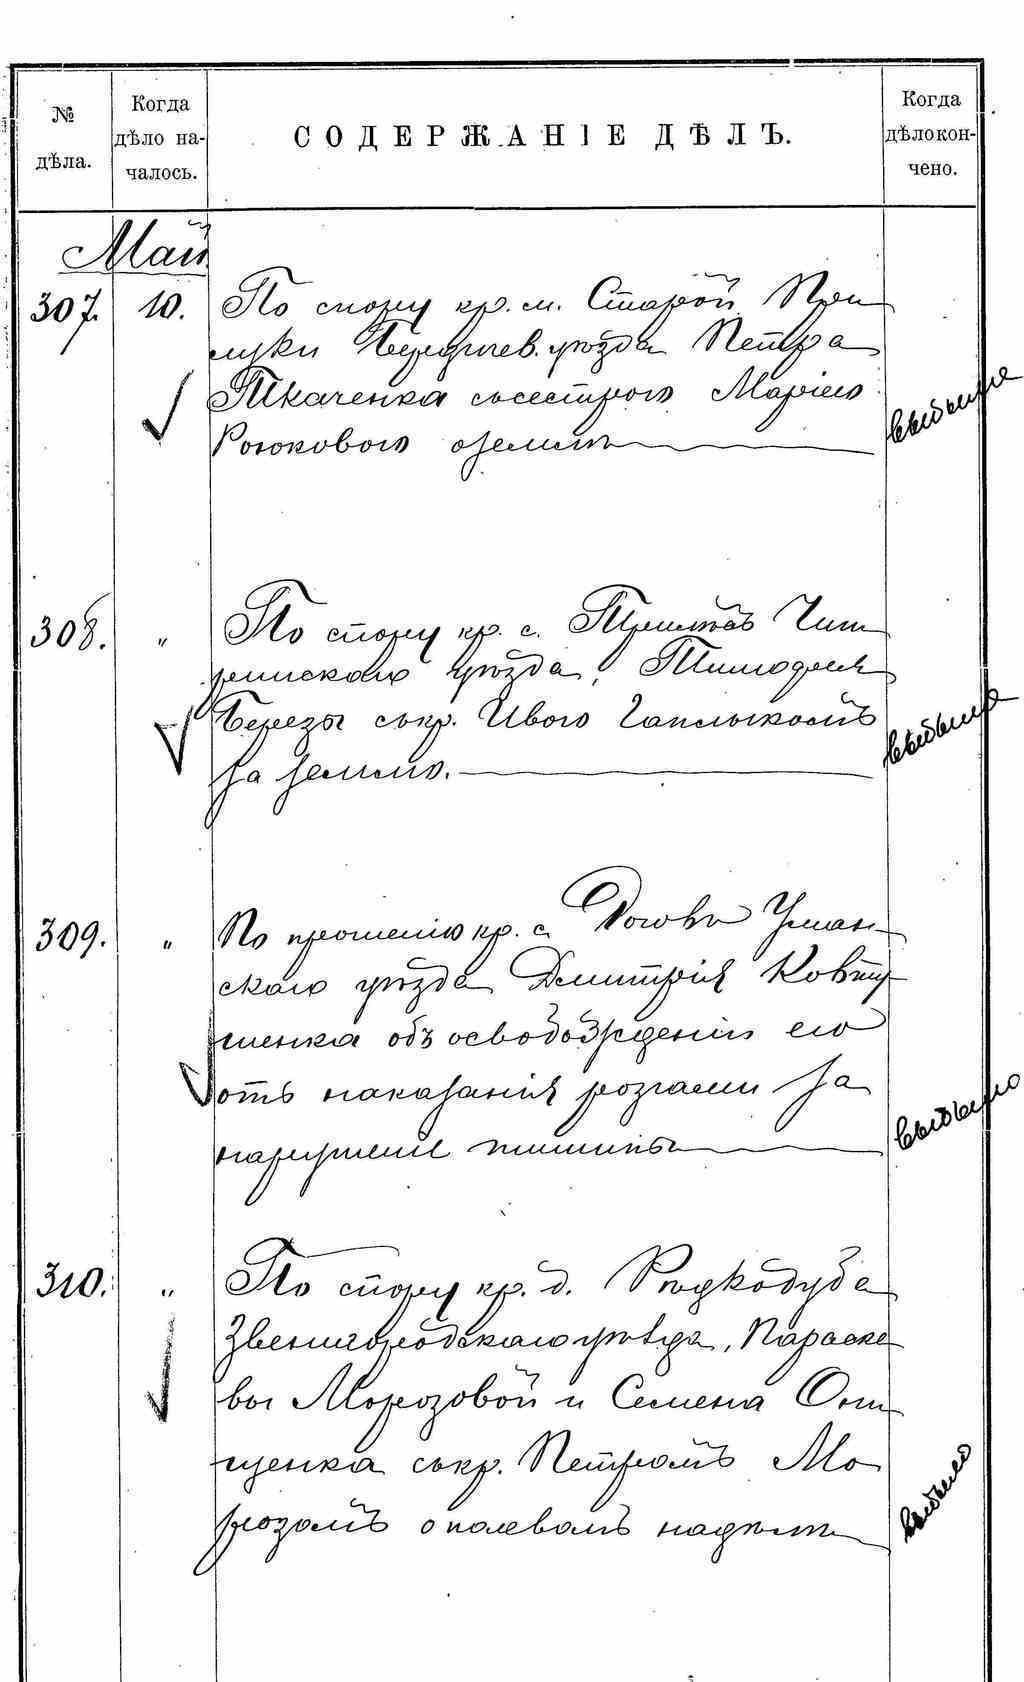 № дѣла.
Когда дѣло на-
чалось.
СОДЕРЖАНІЕ ДѢЛЪ.
Когда дѣло кон-
чено.
Май
307. 10. По спору кр. м. Старой При
луки Бердичев. уѣзда Петра
Ткаченка съ сестрою Маріею
Роюковою о землѣ
выбыло
308. " По спору кр. с. Чиги
ринскаго уѣзда, Тимофея
Березы съ кр. Ивою
за землю.
выбыло
309. " По прошенію кр. с. Уман-
скаго уѣзда Дмитрія Ковту
шенка объ освобожденіи его
отъ наказанія розгами за
нарушеніе тишины
выбыло
310. " По спору кр. д. Рыдкодуба
Звенигородскаго уѣзда, Параске
вы Морозовой и Семена Они
щенка съ кр. Петромъ Мо
розомъ о полевомъ надѣлѣ
выбыло